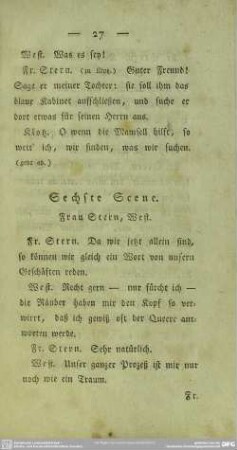 — 27 —
West. Was es sey!
Fr. Stern. (zu Klotz.) Guter Freund!
Sage er meiner Tochter: sie soll ihm das
blaue Kabinet aufschließen, und suche er
dort etwas für seinen Herrn aus.
Klotz. O wenn die Mamsell hilft, so
weiß ich, wir finden, was wir suchen.
(geht ab.)
Sechste Scene.
Frau Stern, West.
Fr. Stern. Da wir jetzt allein sind,
so können wir gleich ein Wort von unsern
Geschäften reden.
West. Recht gern — nur fürcht ich —
die Räuber haben mir den Kopf so ver-
wirrt, daß ich gewiß oft der Queere ant-
worten werde.
Fr. Stern. Sehr natürlich.
West. Unser ganzer Prozeß ist mir nur
noch wie ein Traum.
Fr.